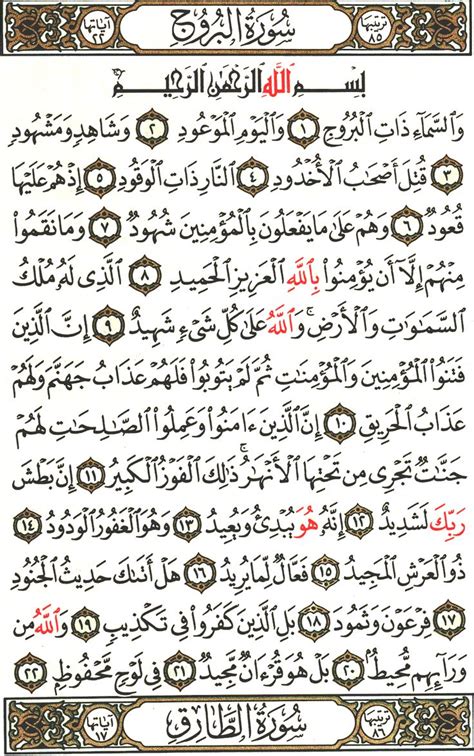 ترتيبها ٨٥ سُورَةُ البُرُوجِ آياتها ٢٢
بِسْمِ اللَّهِ الرَّحْمَٰنِ الرَّحِيمِ
وَٱلسَّمَآءِ ذَاتِ ٱلْبُرُوجِ ١ وَٱلْيَوْمِ ٱلْمَوْعُودِ ٢ وَشَاهِدٍ وَمَشْهُودٍ
٣ قُتِلَ أَصْحَٰبُ ٱلْأُخْدُودِ ٤ ٱلنَّارِ ذَاتِ ٱلْوَقُودِ ٥ إِذْ هُمْ عَلَيْهَا
قُعُودٌ ٦ وَهُمْ عَلَىٰ مَا يَفْعَلُونَ بِٱلْمُؤْمِنِينَ شُهُودٌ ٧ وَمَا نَقَمُوا۟
مِنْهُمْ إِلَّآ أَن يُؤْمِنُوا۟ بِٱللَّهِ ٱلْعَزِيزِ ٱلْحَمِيدِ ٨ ٱلَّذِى لَهُۥ مُلْكُ
ٱلسَّمَٰوَٰتِ وَٱلْأَرْضِ ۚ وَٱللَّهُ عَلَىٰ كُلِّ شَىْءٍ شَهِيدٌ ٩ إِنَّ ٱلَّذِينَ
فَتَنُوا۟ ٱلْمُؤْمِنِينَ وَٱلْمُؤْمِنَٰتِ ثُمَّ لَمْ يَتُوبُوا۟ فَلَهُمْ عَذَابُ جَهَنَّمَ وَلَهُمْ
عَذَابُ ٱلْحَرِيقِ ١٠ إِنَّ ٱلَّذِينَ ءَامَنُوا۟ وَعَمِلُوا۟ ٱلصَّٰلِحَٰتِ لَهُمْ
جَنَّٰتٌ تَجْرِى مِن تَحْتِهَا ٱلْأَنْهَٰرُ ۚ ذَٰلِكَ ٱلْفَوْزُ ٱلْكَبِيرُ ١١ إِنَّ بَطْشَ
رَبِّكَ لَشَدِيدٌ ١٢ إِنَّهُۥ هُوَ يُبْدِئُ وَيُعِيدُ ١٣ وَهُوَ ٱلْغَفُورُ ٱلْوَدُودُ ١٤
ذُو ٱلْعَرْشِ ٱلْمَجِيدُ ١٥ فَعَّالٌ لِّمَا يُرِيدُ ١٦ هَلْ أَتَىٰكَ حَدِيثُ ٱلْجُنُودِ
١٧ فِرْعَوْنَ وَثَمُودَ ١٨ بَلِ ٱلَّذِينَ كَفَرُوا۟ فِى تَكْذِيبٍ ١٩ وَٱللَّهُ مِن
وَرَآئِهِم مُّحِيطٌۢ ٢٠ بَلْ هُوَ قُرْءَانٌ مَّجِيدٌ ٢١ فِى لَوْحٍ مَّحْفُوظٍۭ ٢٢
ترتيبها ٨٦ سُورَةُ الطَّارِقِ آياتها ١٧